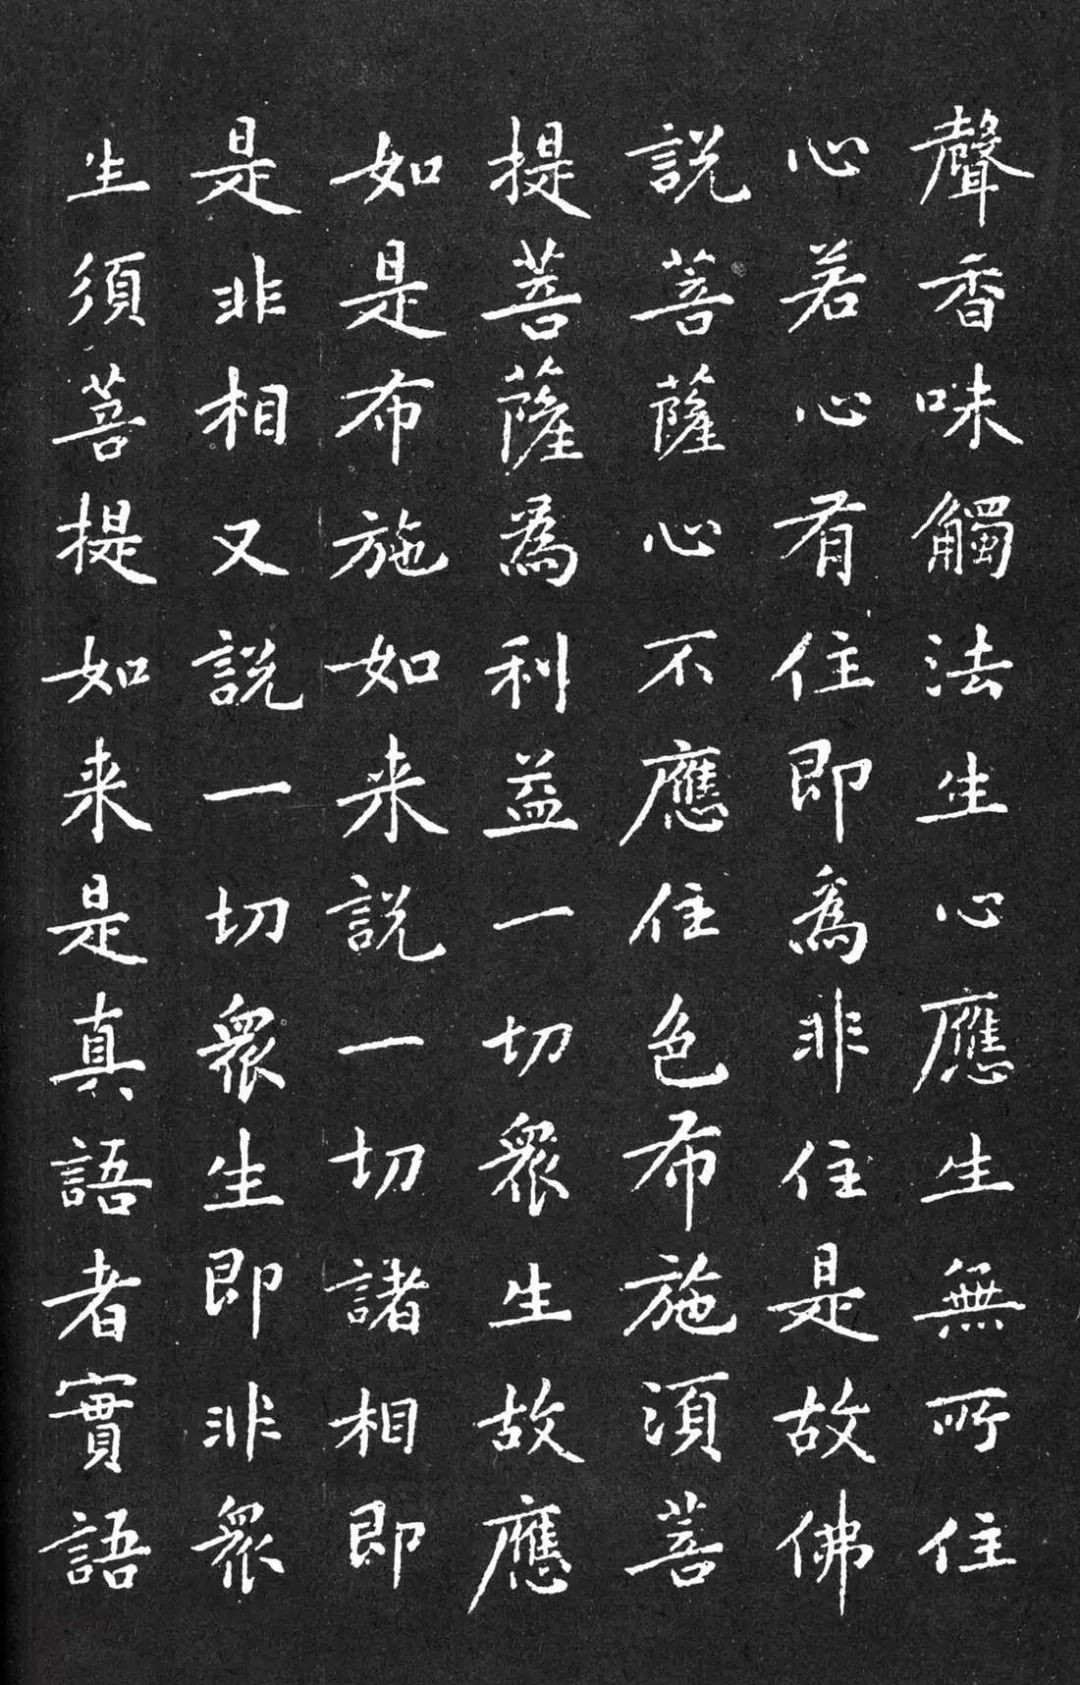 聲香味觸法生心應生無所住
心若心有住即為非住是故佛
說菩薩心不應住色布施須菩
提菩薩為利益一切眾生故應
如是布施如来說一切諸相即
是非相又說一切眾生即非眾
生須菩提如来是真語者實語